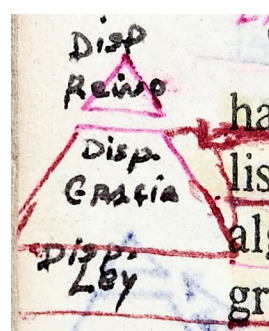 Disp
Reino
Disp.
Gracia
Disp.
Ley
ha
lis
alg
gr